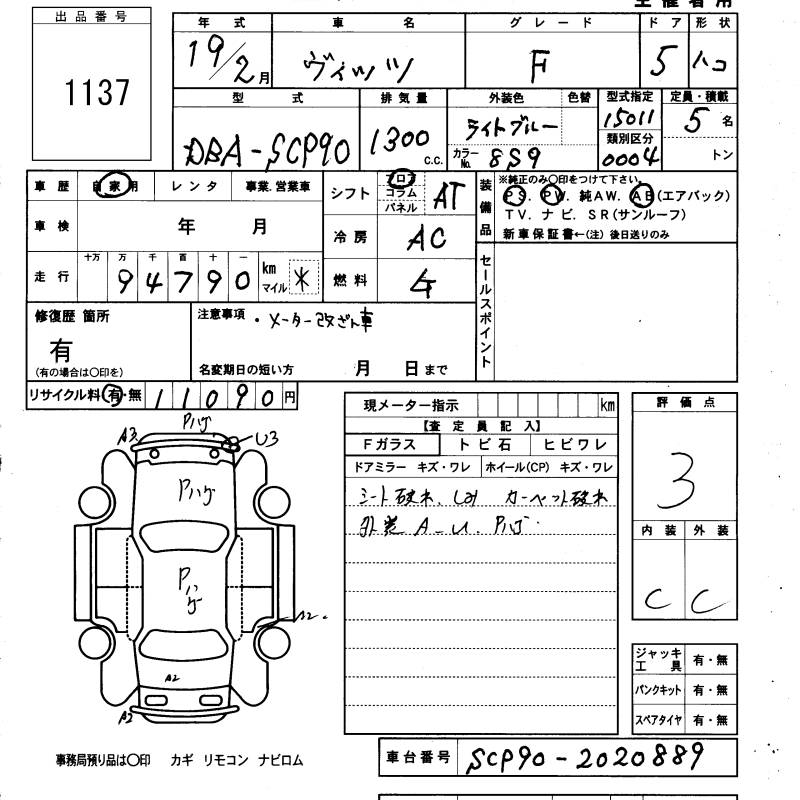 出品番号
1137
年式 車名 グレード ドア 形状
19/2月 ヴィッツ F 5 ハコ
型式 排気量 外装色 色替 型式指定 定員・積載
DBA-SCP90 1300 c.c. ライトブルー 15011 5名
カラーNo. 8S9 類別区分 0004 トン
車歴 自家用 レンタ 事業.営業車 シフト フロア コラム パネル AT
装備品 ※純正のみ〇印をつけて下さい。
PS. PW. 純AW. AB(エアバック)
TV. ナビ. SR(サンルーフ)
新車保証書←(注) 後日送りのみ
車検 年 月 冷房 AC
走行 十万 万 千 百 十 一
94790 km マイル * 燃料 ガ
セールスポイント
修復歴 箇所 注意事項 ・メーター改ざん車
有
(有の場合は〇印を) 名変期日の短い方 月 日まで
リサイクル料 有・無 11090円
現メーター指示 km
評価点
【査定員記入】
Fガラス トビ石 ヒビワレ
ドアミラー キズ・ワレ ホイール(CP) キズ・ワレ
シート破れ、しみ カーペット破れ
外装 A_U、Pハゲ
3
内装 外装
C C
Pハゲ
A3 U3
Pハゲ
Pハゲ
A2
A2
A2
ジャッキ工具 有・無
パンクキット 有・無
スペアタイヤ 有・無
事務局預り品は〇印 カギ リモコン ナビロム
車台番号 SCP90-2020889